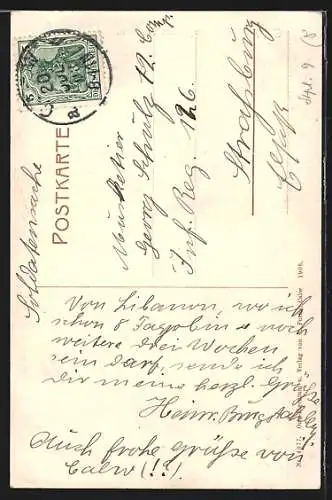 Soldatensache
POSTKARTE
Musketier
Georg Schulz 12. Comp.
Inf. Reg. 126.
Straßburg
Elsaß
Von Libanon, wo ich
schon 8 Tage bin u. noch
weitere drei Wochen
sein darf, sende ich
Dir meine herzl. Grüße
Heinr.
Auch frohe Grüße von
Calw (!!)
Verlag von
1908.